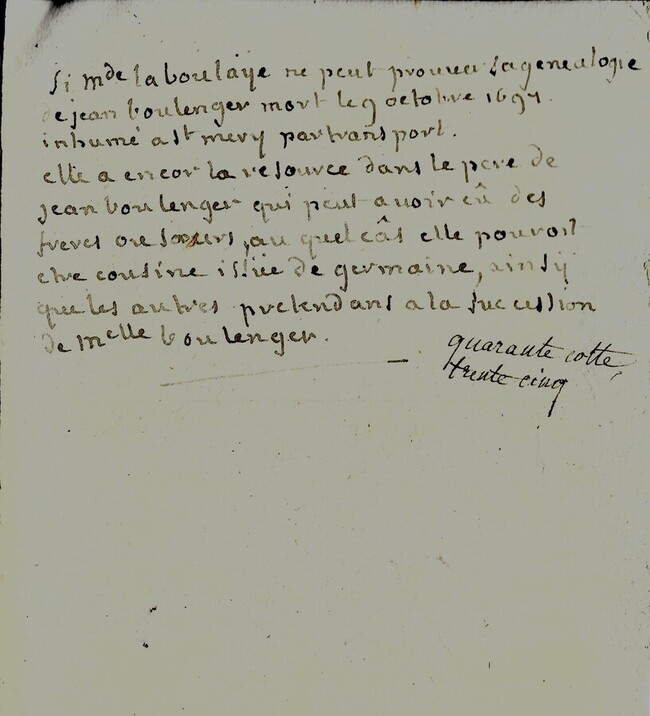 Si mde laboulaÿe ne peut prouver sa genealogie
de jean boulenger mort le 9 octobre 1697.
inhumé a st mery par transport.
elle a encor la resource dans le pere de
jean boulenger qui peut avoir eû des
freres ou soeurs, au quel câs elle pouroit
etre cousine issüe de germaine, ainsÿ
que les autres pretendans a la succession
de melle boulenger.
quarante cotte
trente cinq